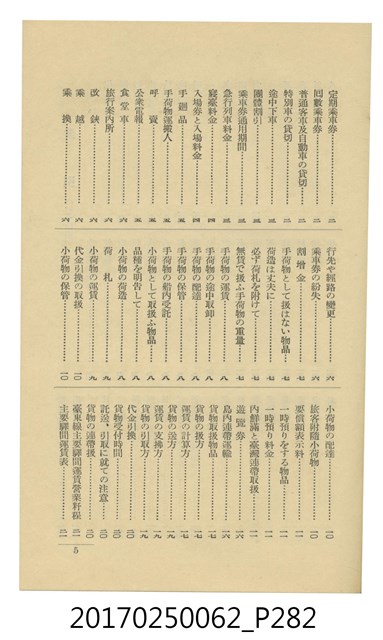 定期乘車券……二
回數乘車券……二
普通客車及自動車の貸切……二
特別車の貸切……二
途中下車……三
團體割引……三
乘車券通用期間……三
急行列車料金……三
寢臺料金……四
入場券と入場料金……四
手廻品……五
手荷物運搬人……五
呼賣……五
公衆電報……五
食堂車……六
旅行案內所……六
改鋏……六
乘越……六
乘換……六
行先や經路の變更……六
乘車券の紛失……六
割增金……七
手荷物として扱はない物品……七
荷造は丈夫に……七
必ず荷札を附けて……七
無賃で扱ふ手荷物の重量……七
手荷物の運賃……八
手荷物の途中取卸……八
手荷物の配達……八
手荷物の保管……八
手荷物の船內受託……八
小荷物として取扱ふ物品……八
品種を明告して……八
小荷物の荷造……八
荷札……九
小荷物の運賃……九
代金引換の取扱……一〇
小荷物の保管……一〇
小荷物の配達……一〇
旅客附隨小荷物……一〇
要償額表示料……一一
一時預りをする物品……一一
一時預り料金……一一
內鮮滿と臺灣連帶取扱……一一
遊覽券……一六
島內連帶運輸……一六
貨物取扱物品……一七
貨物の扱方……一七
運賃の計算方……一七
貨物の送方……一九
運賃の支拂方……一九
貨物の引取方……一九
代金引換……二〇
貨物受付時間……二〇
託送、引取に就ての注意……二〇
貨物の連帶扱……二〇
臺東線主要驛間運賃營業粁程……二一
主要驛間運賃表……二一
5
20170250062_P282